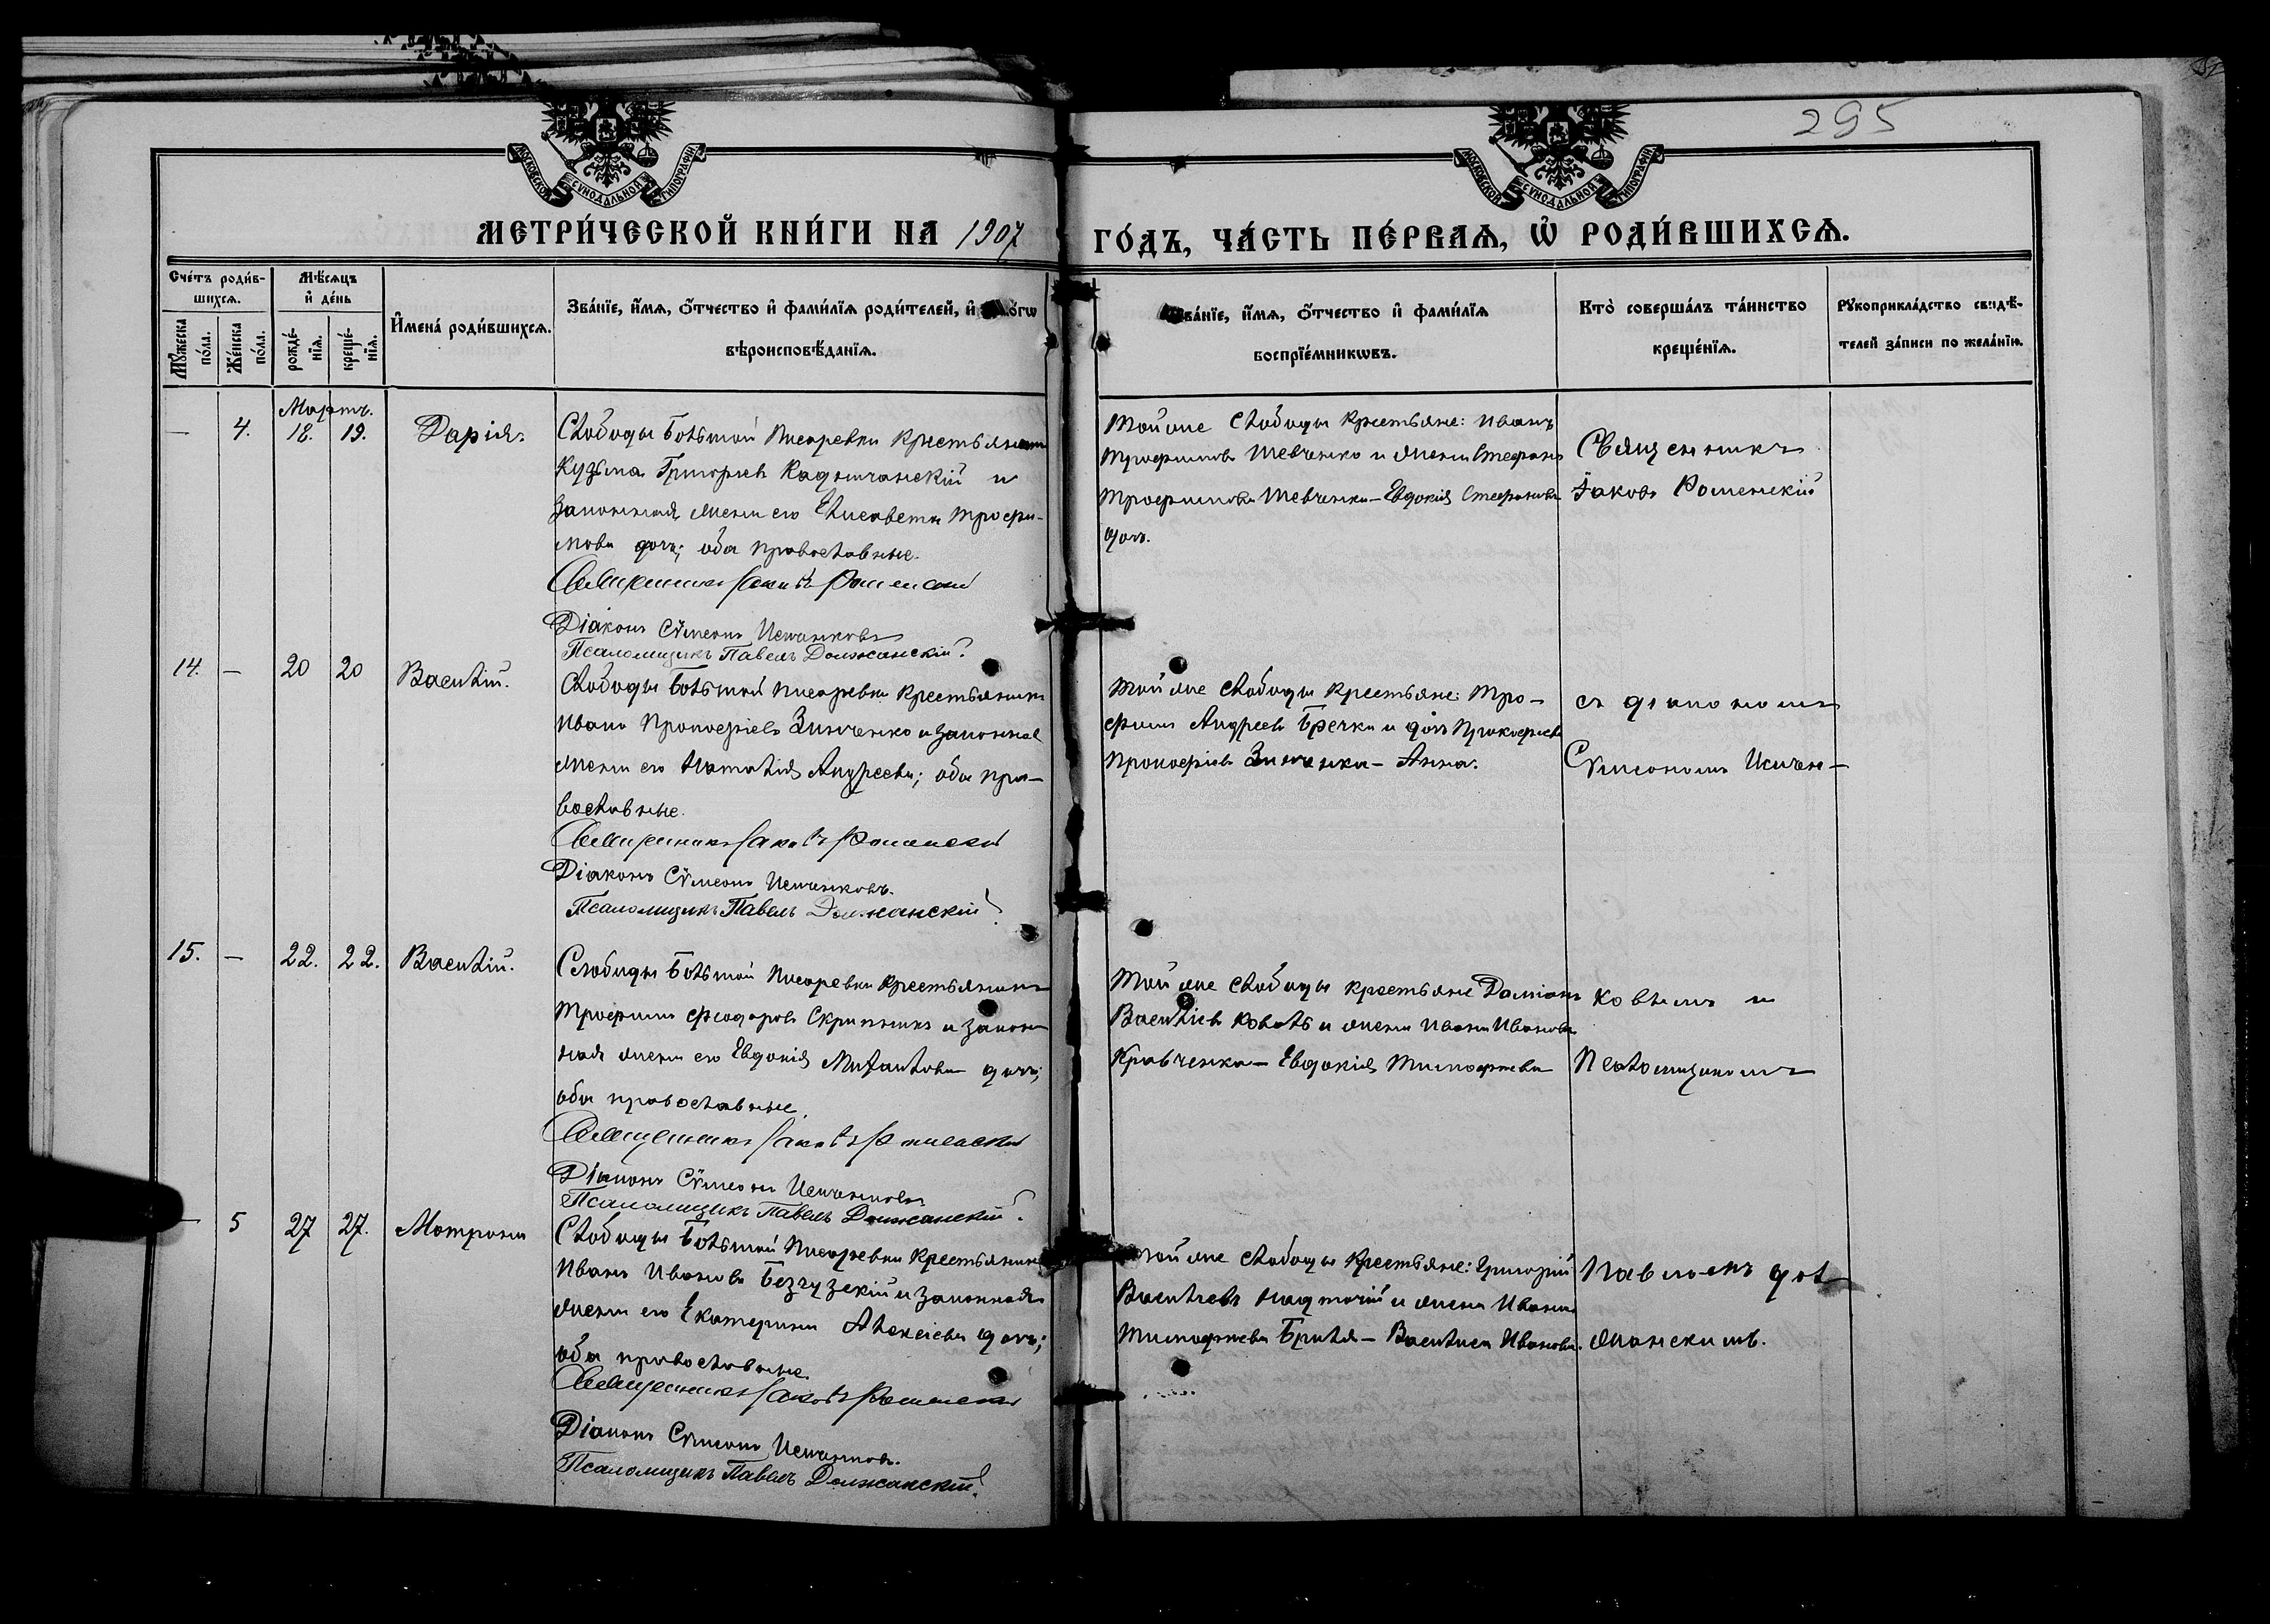 295
МОСКОВСКОЙ СУНОДАЛЬНОЙ ТИПОГРАФІИ
МОСКОВСКОЙ СУНОДАЛЬНОЙ ТИПОГРАФІИ
МЕТРИ́ЧЕСКОЙ КНИ́ГИ НА 1907
ГО́ДЪ, ЧА́СТЬ ПЕ́РВАѦ, Ѡ РОДИ́ВШИХСѦ.
Сче́тъ роди́в-
шихсѧ.
Мꙋ́жеска по́ла.
Же́нска по́ла.
Мѣ́сѧцъ
и де́нь
рожде́-
нїѧ.
креще́-
нїѧ.
Имена́ роди́вшихсѧ.
Зва́нїе, и́мѧ, о́тчество и фами́лїѧ роди́телей, и
вѣроисповѣ́данїѧ.
Зва́нїе, и́мѧ, о́тчество и фами́лїѧ
воспрїе́мникѡвъ.
Кто̀ соверша́лъ та́инство
креще́нїѧ.
Рꙋкоприкла́дство свидѣ́-
телей за́писи по жела́нїю.
Мартъ.
— 4. 18. 19. Дарія
Слободы Большой Писаревки крестьянинъ
Кузьма Григорьевъ Кадынчанскій и
законная жена его Елисавета Трофи-
мова дочь; оба православные.
Священникъ Іаковъ Роменскій
Діаконъ Сѵмеонъ Исиченковъ
Псаломщикъ Павелъ Должанскій.
Той же слободы крестьяне: Иванъ
Трофимовъ Шевченко и жена Стефана
Трофимова Шевченка — Евдокія Стефанова
дочь.
Священникъ
Іаковъ Роменскій
14. — 20 20 Василій.
Слободы Большой Писаревки крестьянинъ
Иванъ Прокофіевъ Зинченко и законная
жена его Наталія Андреева; оба пра-
вославные.
Священникъ Іаковъ Роменскій
Діаконъ Сѵмеонъ Исиченковъ.
Псаломщикъ Павелъ Должанскій
Той же слободы крестьяне: Тро-
фимъ Андреевъ Бречка и дочь Прокофія
Прокофіева Зинченка — Анна.
съ діакономъ
Сѵмеономъ Исичен-
15. — 22. 22. Василій.
Слободы Большой Писаревки крестьянинъ
Трофимъ Феодоровъ Скрипникъ и закон-
ная жена его Евдокія Михаилова дочь;
оба православные.
Священникъ Іаковъ Роменскій
Діаконъ Сѵмеонъ Исиченковъ
Псаломщикъ Павелъ Должанскій.
Той же слободы крестьяне Даміанъ
Василіевъ Коваль и жена Ивана Иванова
Кравченка — Евдокія Тимофеева
ковымъ и
Псаломщикомъ
— 5 27 27. Матрона
Слободы Большой Писаревки крестьянинъ
Иванъ Ивановъ Безгузскій и законная
жена его Екатерина Алексіева дочь;
оба православные.
Священникъ Іаковъ Роменскій
Діаконъ Сѵмеонъ Исиченковъ.
Псаломщикъ Павелъ Должанскій.
Той же слободы крестьяне: Григорій
Василіевъ Надточій и жена Ивана
Тимофеева Бриля — Василиса Иванова.
Павломъ Дол-
жанскимъ.